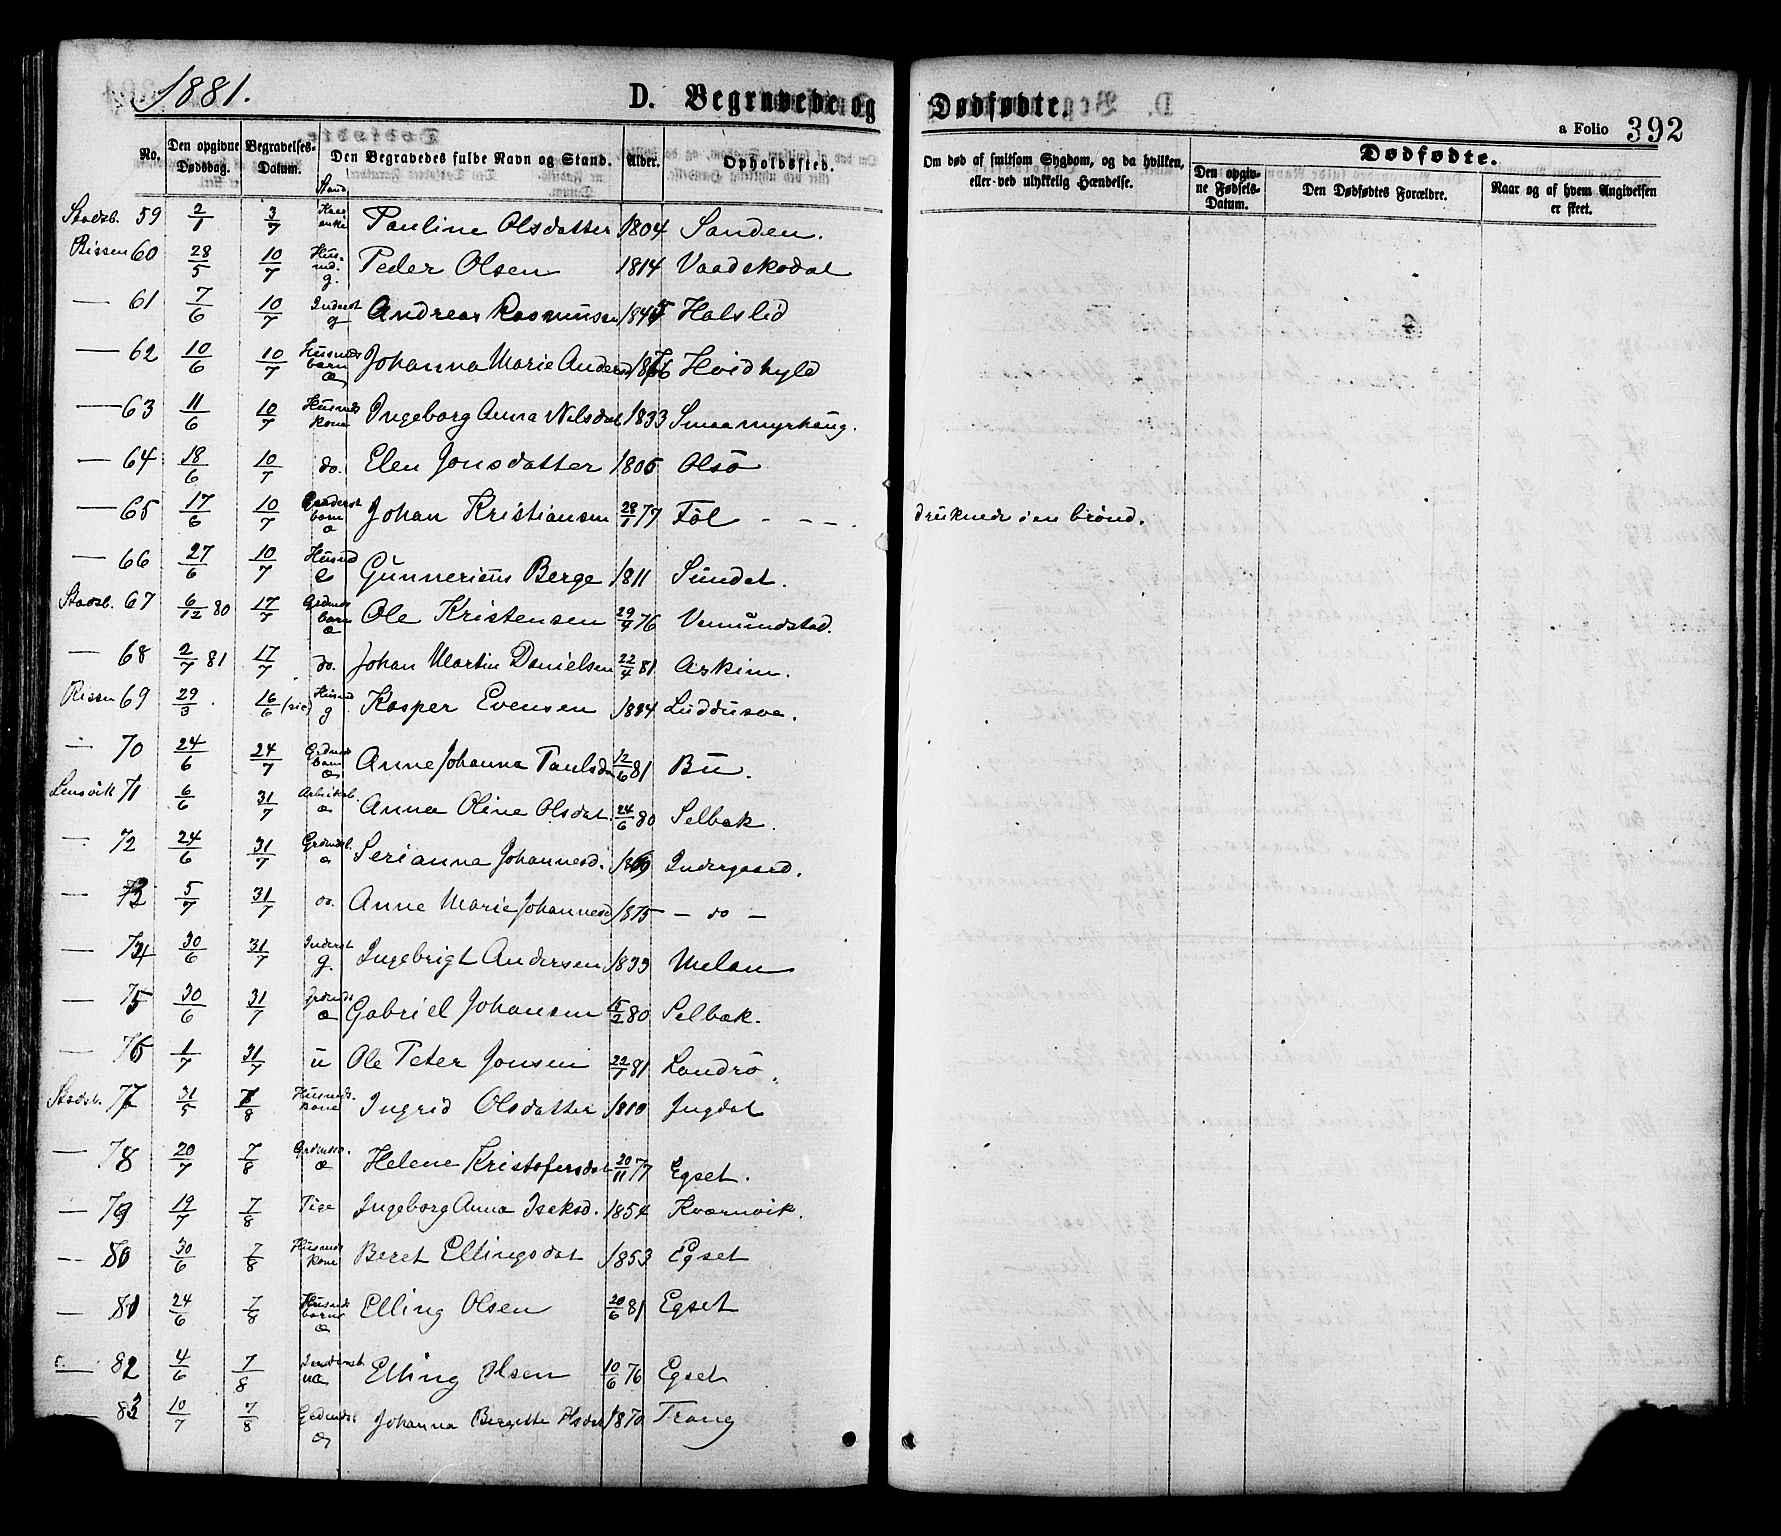 1881. D. Begravede og Dødfødte. a Folio 392
No. Den opgivne Dødsdag. Begravelses-Datum. Stand Den Begravedes fulde Navn og Stand. Alder. Opholdssted. Om død af smitsom Sygdom, og da hvilken, eller ved ulykkelig Hændelse. Dødfødte.
Den opgivne Fødsels-Datum. Den Dødfødtes Forældre. Naar og af hvem Angivelsen er skeet.
Stadsb. 59 2/1 3/7 enke Pauline Olsdatter 1804 Sanden.
Rissen 60 28/5 10/7 Husmd. g. Peder Olsen 1814 Vaadskodal
— 61 7/6 10/7 Inderst g Andreas Rasmussen 1845 Halslid
— 62 10/6 10/7 Husmds barn æ Johanna Marie Anders Hvidhyld
— 63 11/6 10/7 Husmds kone Ingeborg Anna Nilsdat 1833 Smaamyrhaug.
— 64 18/6 10/7 do. Elen Jonsdatter 1805 Olsö
— 65 17/6 10/7 barn æ Johan Kristiansen 28/1 77 Föl - - - druknede i en brönd.
— 66 27/6 10/7 Husmd e Gunnerius Berge 1811 Sundet.
Stadsb. 67 6/12 80 17/7 Grdmds barn æ Ole Kristensen 29/4 76 Vemundstad.
— 68 2/7 81 17/7 do. Johan Martin Danielsen 22/4 81 Askim.
Rissen 69 29/3 . 16/6 (sic) Husmd g Kasper Evensen 1884 Luddusve.
— 70 24/6 24/7 Grdmds barn æ Anne Johanna Paulsda 12/6 81 Bu.
Lensvik 71 6/6 31/7 Arbeidsb. æ Anna Oline Olsdat. 24/6 80 Selbæk.
— 72 24/6 31/7 Grdmdsb. æ Serianna Johannesd. 1869 Indergaard.
— 73 5/7 31/7 do. Anne Marie Johannesd 1875 — do —
— 74 30/6 31/7 Inderst g. Ingebrigt Andersen 1833 Melan
— 75 30/6 31/7 Grdmds æ Gabriel Johansen 15/2 80 Selbæk.
— 76 1/7 31/7 u Ole Peter Jonsen 22/7 81 Landrö.
Stadsb. 77 31/5 7/8 Husmds. kone Ingrid Olsdatter 1810 Ingdal
— 78 20/7 7/8 æ Helene Kristofersdat 20/11 77 Egset.
— 79 19/7 7/8 Pige Ingeborg Anna Isaksd. 1854 Kvarnvik.
— 80 30/6 7/8 Husmds kone Beret Ellingsdat 1853 Egset
— 81 24/6 7/8 Husmds barn æ Elling Olsen 20/6 81 Egset
— 82 4/6 7/8 Inderstb. uæ Elling Olsen 10/6 76 Egset
— 83 10/7 7/8 Grdmdsb æ Johanna Bergitte Olsdat 1870 Trang